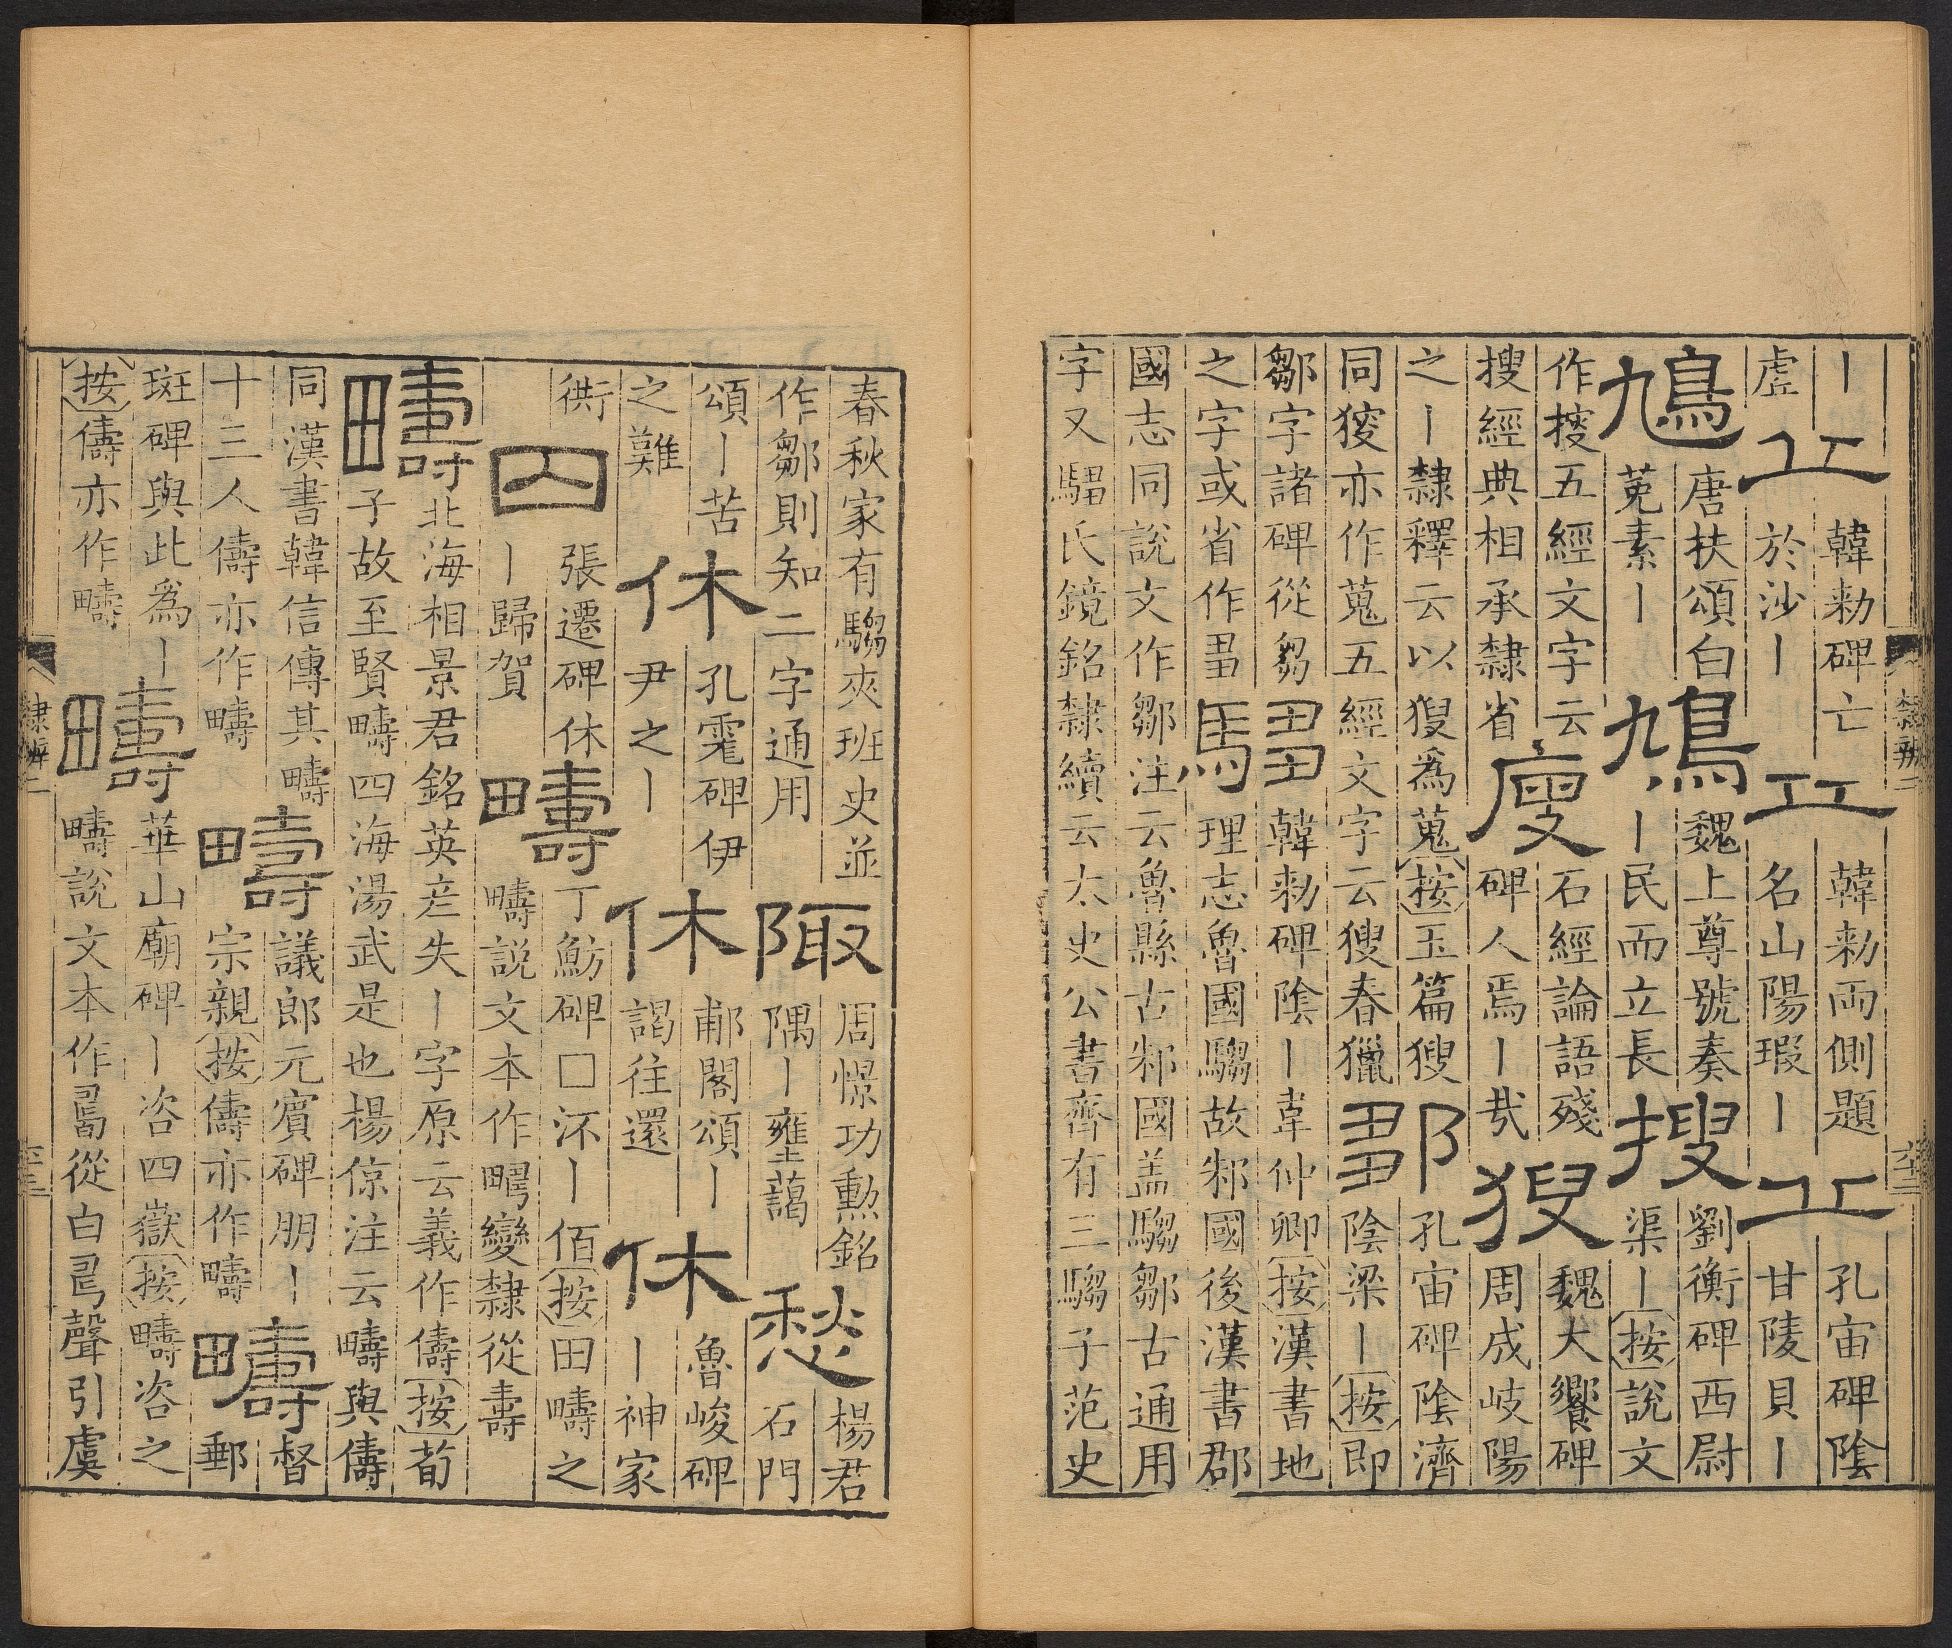 丨
虛
丘
韓勑碑亡
於沙丨
丘
韓勑兩側題
名山陽瑕丨
丘
孔宙碑陰
甘陵貝丨
鳩
唐扶頌白
菟素丨
鳩
魏上尊號奏
丨民而立長
搜
劉衡碑西尉
渠丨按說文
作㨶五經文字云
搜經典相承隸省
廋
石經論語殘
碑人焉丨哉
獀
魏大饗碑
周成岐陽
之丨隸釋云以獀爲蒐按玉篇獀
同獶亦作蒐五經文字云獀春獵
鄒
孔宙碑陰濟
陰梁丨按即
鄒字諸碑從芻
之字或省作
騶
韓勑碑陰丨韋仲卿按漢書地
理志魯國騶故邾國後漢書郡
國志同說文作鄒注云魯縣古邾國盖騶鄒古通用
字又騶氏鏡銘隸續云太史公書齊有三騶子范史
隸辨二
春秋家有騶夾班史並
作鄒則知二字通用
陬
周憬功勳銘
隅丨壅藹
愁
楊君
石門
頌丨苦
之難
休
孔雾碑伊
尹之丨
休
郙閣頌丨
謁往還
休
魯峻碑
丨神家
衖
囚
張遷碑休
丨歸賀
疇
丁魴碑□沠丨佰按田疇之
疇說文本作變隸從壽
疇
北海相景君銘英彥失丨字原云義作儔按荀
子故至賢疇四海湯武是也楊倞注云疇與儔
同漢書韓信傳其疇
十三人儔亦作疇
疇
議郎元賓碑朋丨
宗親按儔亦作疇
疇
督
郵
斑碑與此爲丨
按儔亦作疇
疇
華山廟碑丨咨四嶽按疇咨之
疇說文本作從白聲引虞